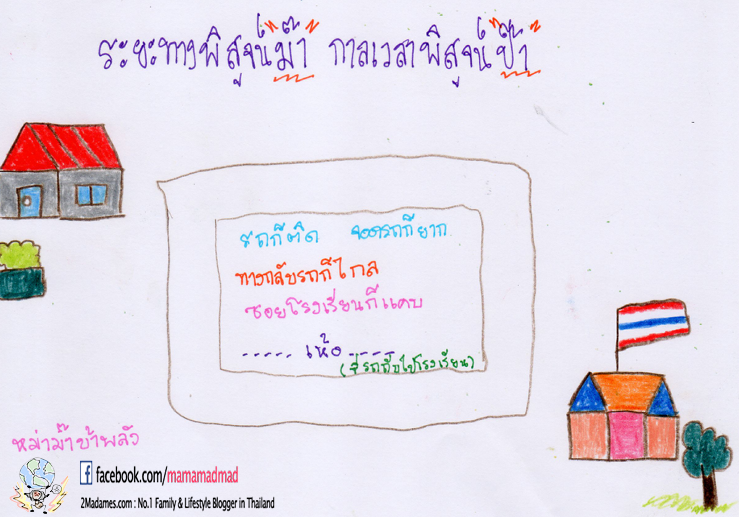 ระยะทางพิสูจน์ม๊า กาลเวลาพิสูจน์ป๊า
รถก็ติด จอดรถก็ยาก
ทางกลับรถก็ไกล
ซอยโรงเรียนก็แคบ
..... เห้อ .....
(ขี่รถถีบไปโรงเรียน)
หม่าม๊าบ้าพลัง
facebook.com/mamamadmad
2Madames.com : No.1 Family & Lifestyle Blogger in Thailand